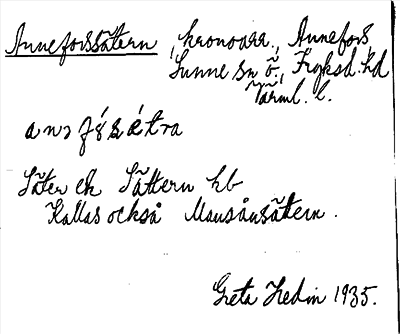 Anneforssätern, kronoarr., Annefors,
Sunne sn ö., Fryksd. hd
Värml. l.
Säter ek Sättern kb
Kallas också Mansånsättern.
Greta Hedin 1935.